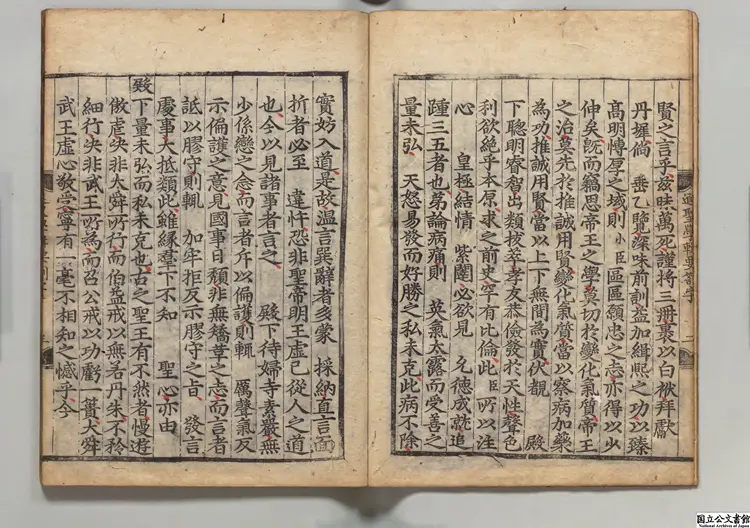 賢之言乎玆昧萬死謹將三冊裹以白袱拜獻
丹墀倘 垂乙覽深味前訓益加緝熙之功以臻
高明博厚之域則小臣區區願忠之志亦得以少
伸矣旣而竊思帝王之學莫切於變化氣質帝王
之治莫先於推誠用賢變化氣質當以察病加藥
為功推誠用賢當以上下無間為實伏覩 殿
下聰明睿智出類拔萃孝友恭儉發於天性聲色
利欲絕乎本原求之前史罕有比倫此臣所以注
心 皇極結情 紫闥必欲見 允德成就追
踵三五者也第論病痛則 英氣太露而受善之
量未弘 天怒易發而好勝之私未克此病不除
實妨入道是故溫言巽辭者多蒙 採納直言面
折者必至 違忤恐非聖帝明王虛己從人之道
也今以見諸事者言之 殿下待婦寺素嚴無
少係戀之念而言者斥以偏護則輒 厲聲氣反
示偏護之意見國事日頹非無矯革之志而言者
詆以膠守則輒 加牢拒反示膠守之旨 發言
處事大抵類此雖緣羣下不知 聖心亦由
殿下量未弘而私未克也古之聖王有不然者慢遊
傲虐決非大舜所行而伯益戒以無若丹朱不矜
細行決非武王所為而召公戒以功虧一簣大舜
武王虛心敬受寧有一毫不相知之憾乎今
進聖學輯要箚子
二
国立公文書館
National Archives of Japan